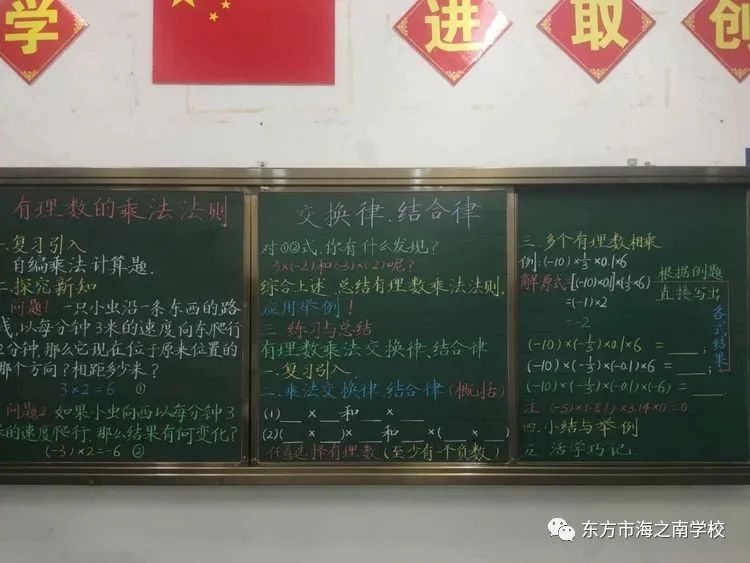 学
进
取
创
有理数的乘法法则
一.复习引入
自编乘法计算题.
二.探究新知
问题1.一只小虫沿一条东西的路
线,以每分钟3米的速度向东爬行
2分钟,那么它现在位于原来位置的
那个方向?相距多少米?
3×2=6 ①
问题2.如果小虫向西以每分钟3
米的速度爬行,那么结果有何变化?
(-3)×2=-6 ②
交换律、结合律
对①②式,你有什么发现?
3×(-2)和(-3)×(-2)呢?
综合上述,总结有理数乘法法则.
应用举例!
三.练习与总结
有理数乘法交换律、结合律
一.复习引入.
二.乘法交换律、结合律(概括)
(1)__×__和__×__
(2)(__×__)×__和__×(__×__)
任意选择有理数(至少有一个负数)
三.多个有理数相乘
例:(-10)×1/3×0.1×6
解原式=[(-10)×0.1]×(1/3×6)
=(-1)×2
=-2
根据例题
直接写出
各式结果
(-10)×(-1/3)×0.1×6=____;
(-10)×(-1/3)×(-0.1)×6=____;
(-10)×(-1/3)×(-0.1)×(-6)=____;
注:(-5)×(-8.1)×3.14×0=0.
四.小结与举例
五.活学巧记.
东方市海之南学校